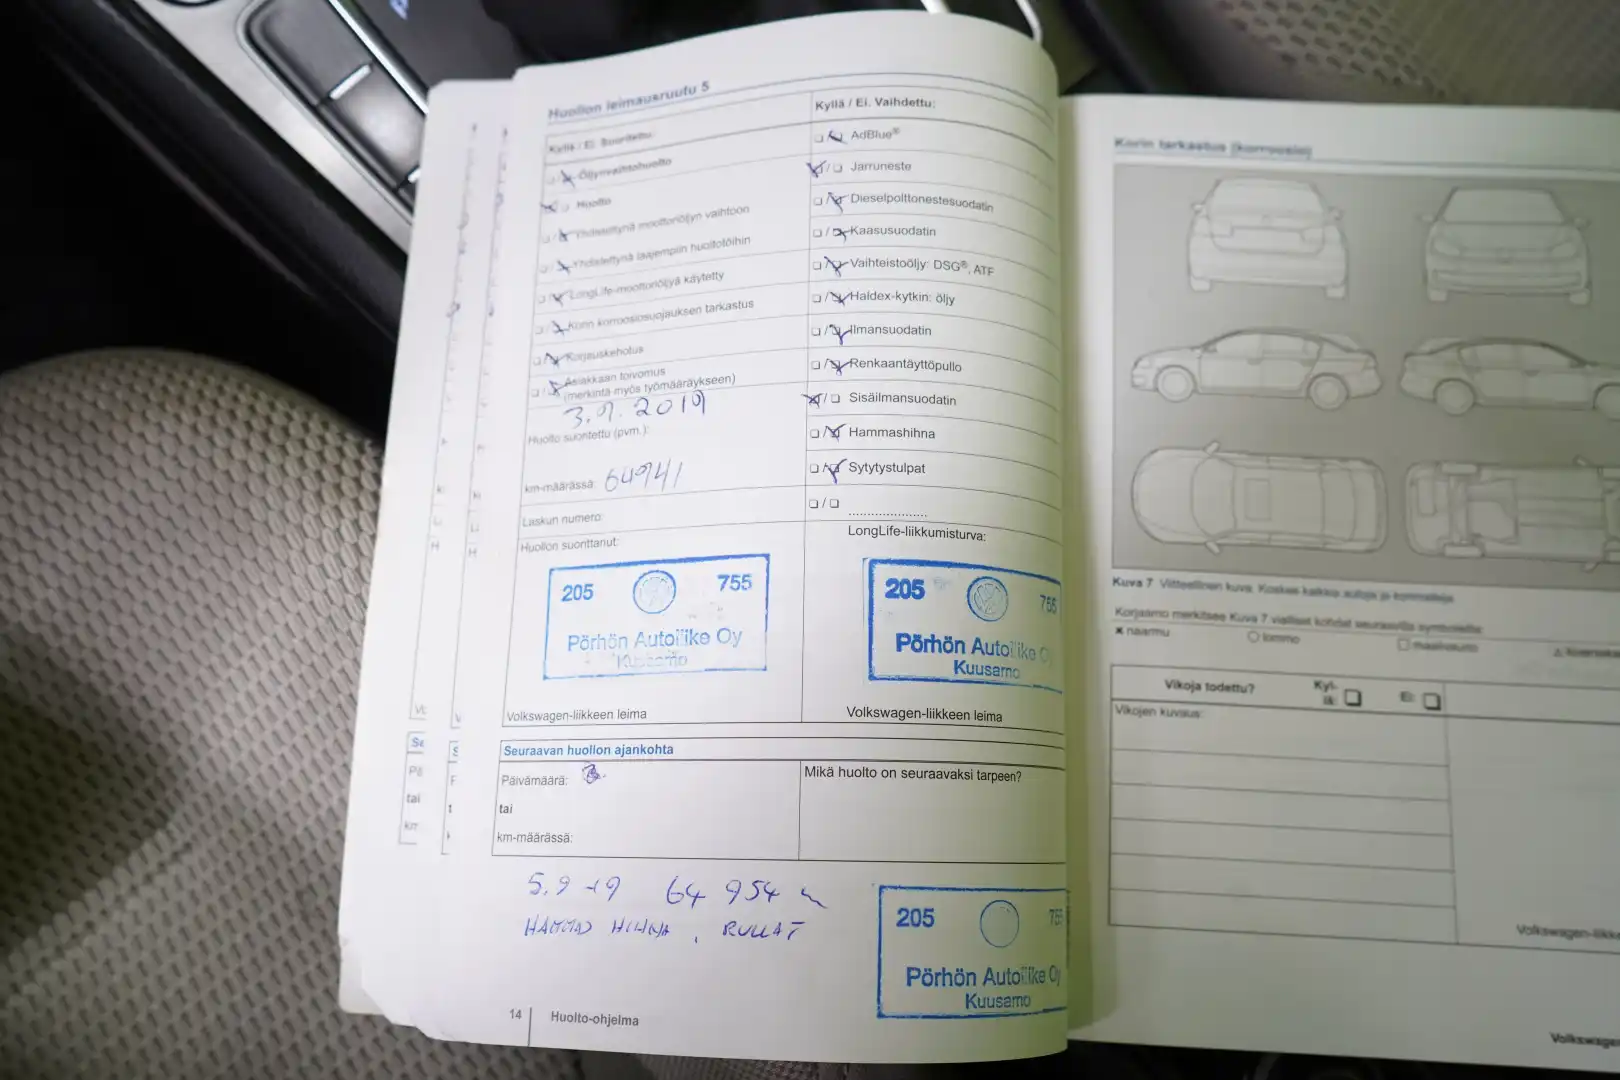 Huollon leimausruutu 5
Kyllä / Ei. Suoritettu:
Öljynvaihtohuolto
Huolto
Yhdistettynä moottoriöljyn vaihtoon
Yhdistettynä laajempiin huoltotöihin
LongLife-moottoriöljyä käytetty
Korin korroosiosuojauksen tarkastus
Korjauskehotus
Asiakkaan toivomus
(merkintä myös työmääräykseen)
3.9.2019
Huolto suoritettu (pvm.):
km-määrässä: 64941
Laskun numero:
Huollon suorittanut:
205 755
Pörhön Autoliike Oy
Kuusamo
Volkswagen-liikkeen leima
Kyllä / Ei. Vaihdettu:
AdBlue®
Jarruneste
Dieselpolttonestesuodatin
Kaasusuodatin
Vaihteistoöljy: DSG®, ATF
Haldex-kytkin: öljy
Ilmansuodatin
Renkaantäyttöpullo
Sisäilmansuodatin
Hammashihna
Sytytystulpat
LongLife-liikkumisturva:
205 755
Pörhön Autoliike O
Kuusamo
Volkswagen-liikkeen leima
Seuraavan huollon ajankohta
Päivämäärä:
tai
km-määrässä:
Mikä huolto on seuraavaksi tarpeen?
5.9-19 64 954
HAMMAS HIHNA, RULLAT
205 755
Pörhön Autoliike Oy
Kuusamo
14 Huolto-ohjelma
Korin tarkastus (korroosio)
Kuva 7 Viitteellinen kuva. Koskee kaikkia autoja ja korimalleja.
Korjaamo merkitsee Kuva 7 vialliset kohdat seuraavilla symboleilla:
naarmu
lommo
Vikoja todettu? Kyl-
lä: Ei:
Vikojen kuvaus:
Volkswagen-liikke
Volkswagen